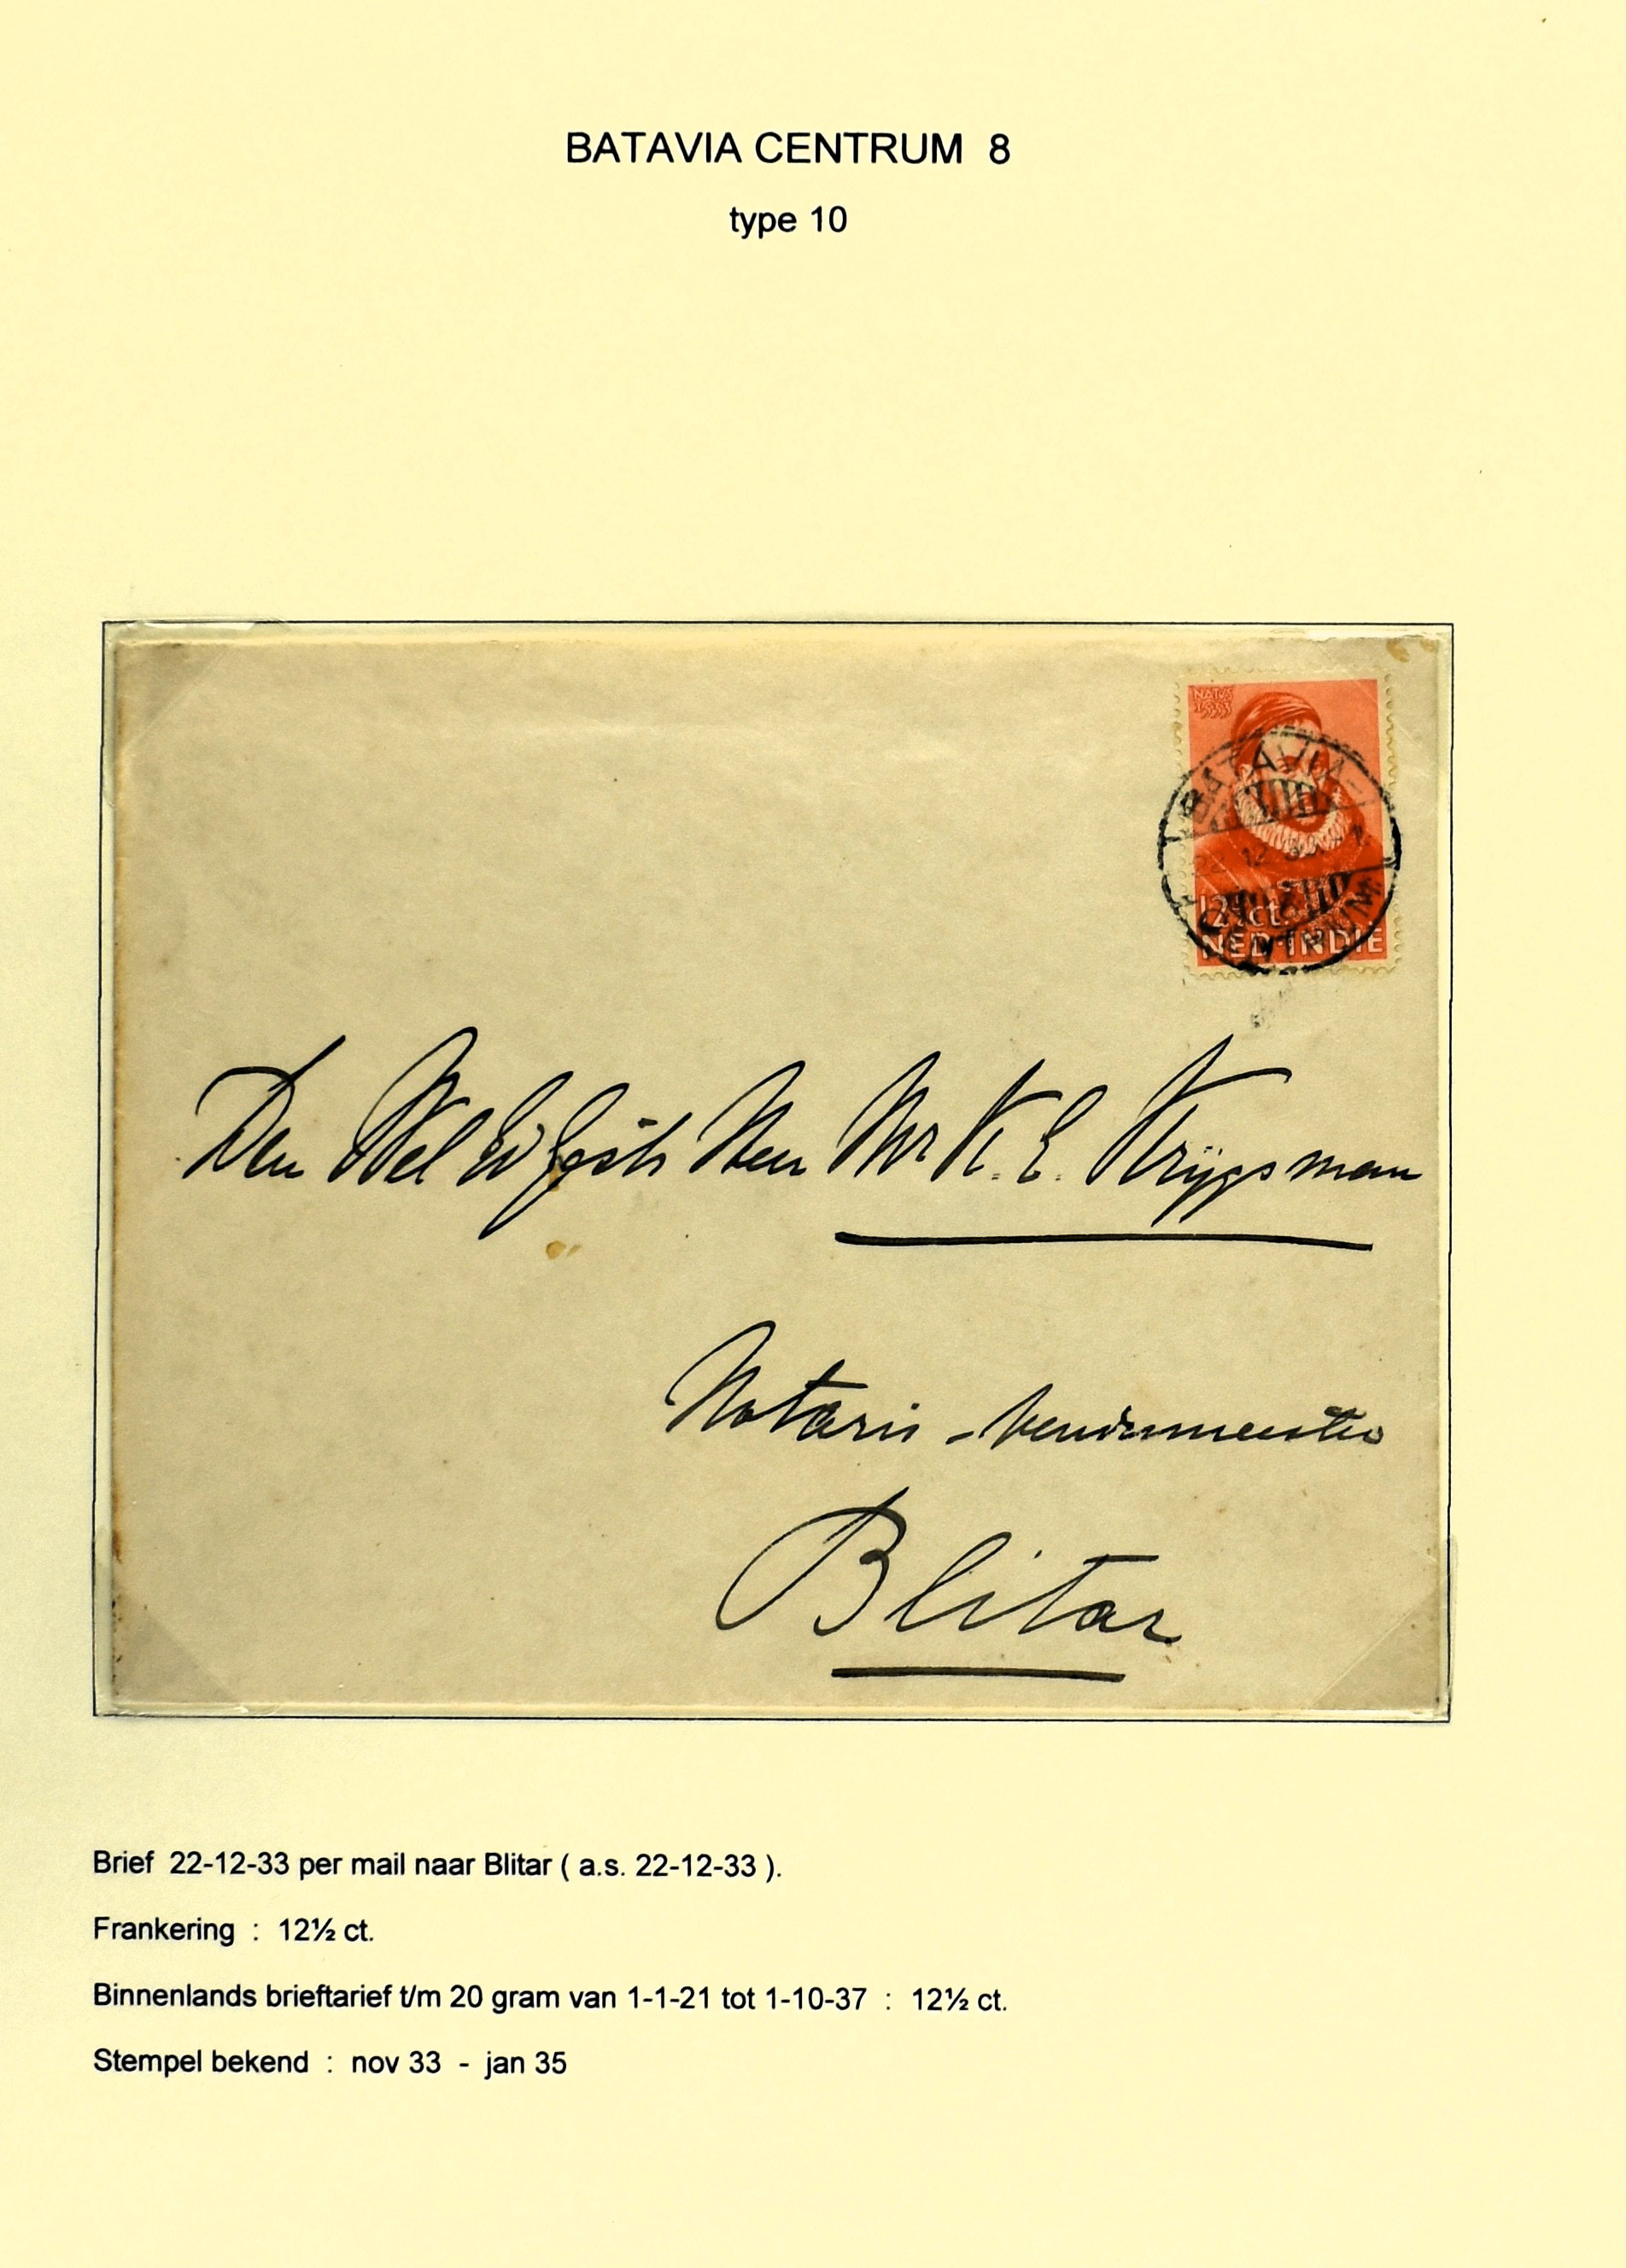 BATAVIA CENTRUM 8
type 10
NATUS
1533
BATAVIA-
22.12.33
12½ ct.
CENTRUM
NED INDIE
Den Wel Ed Gestr Heer Mr K. E. Krijgsman
Notaris - Vendumeester
Blitar
Brief 22-12-33 per mail naar Blitar ( a.s. 22-12-33 ).
Frankering : 12½ ct.
Binnenlands brieftarief t/m 20 gram van 1-1-21 tot 1-10-37 : 12½ ct.
Stempel bekend : nov 33 - jan 35